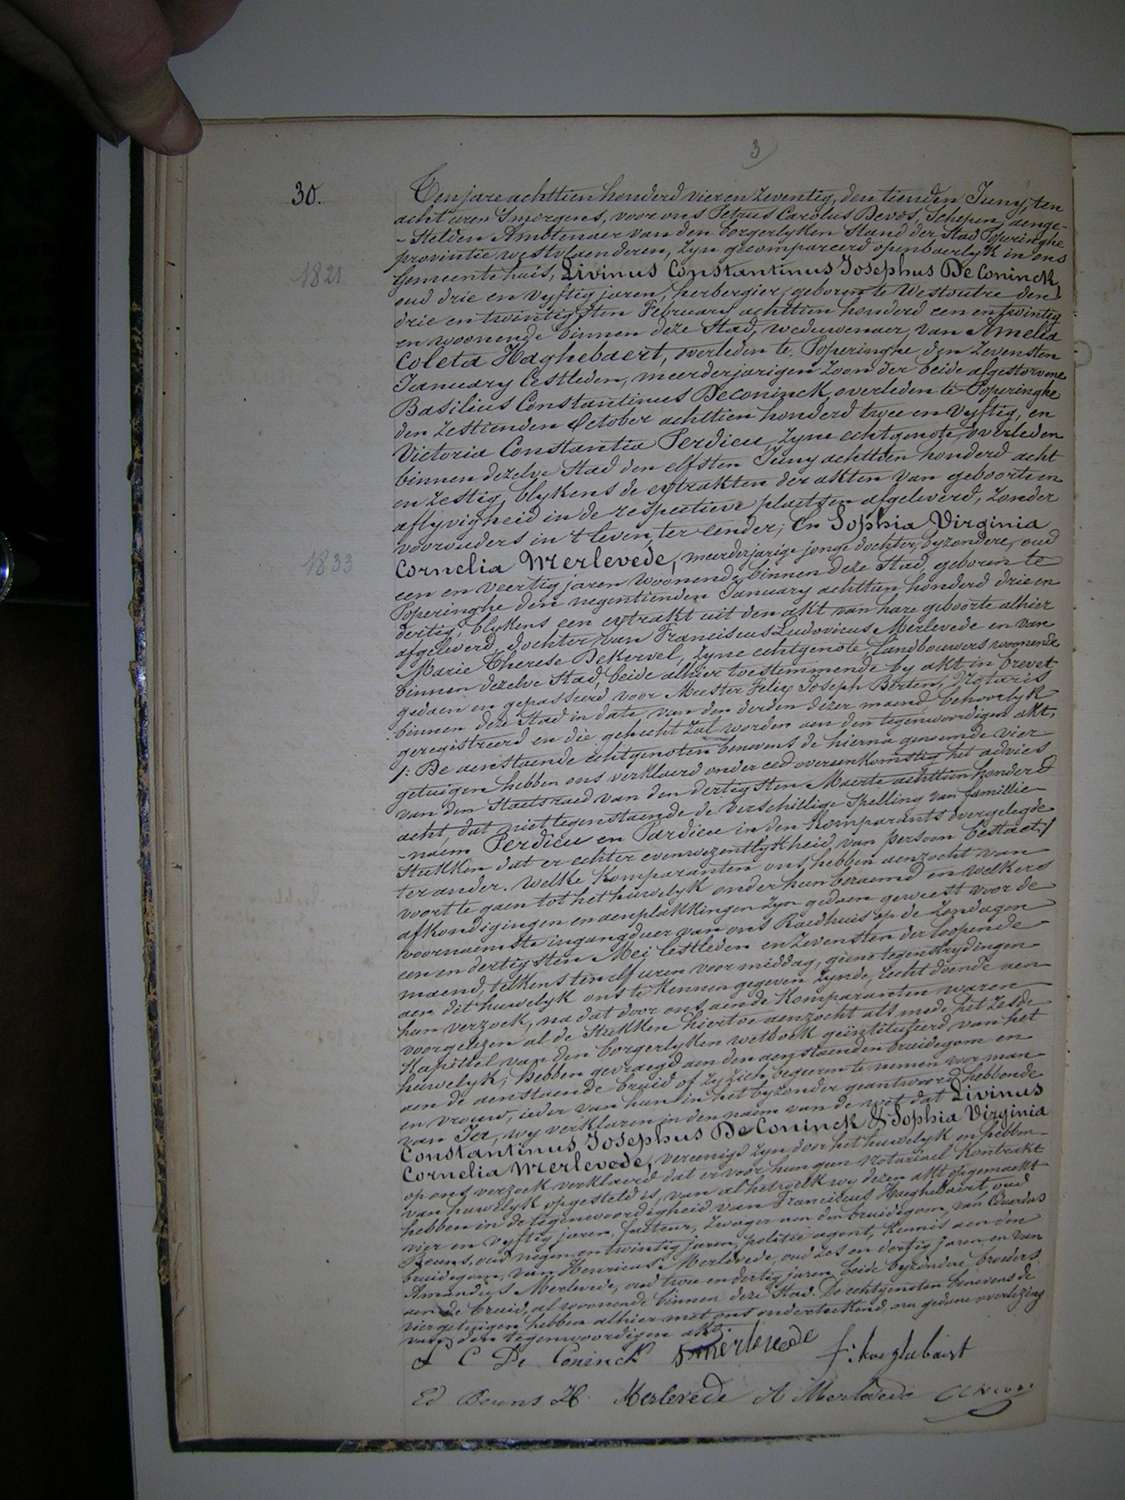 3
30.
Ten jare achttien honderd vier en zeventig, den tienden Juny, ten
acht uren s'morgens, voor ons Petrus Carolus Devos, Schepen, aenge-
-stelden Ambtenaer van den borgerlyken Stand der Stad Poperinghe
provintie westvlaenderen, zyn gecompareerd openbaerlyk in ons
Gemeente huis, Livinus Constantinus Josephus De Coninck,
1821
oud drie en vyftig jaren, herbergier, geboren te Westoutre den
drie en twintigsten February achttien honderd een en twintig
en woonende binnen deze Stad, weduwenaer van Amelia
Coleta Haghebaert, overleden te Poperinghe den zevensten
January lestleden, meerderjarigen zoon der beide afgestorvene
Basilius Constantinus Deconinck, overleden te Poperinghe
den zestienden October achttien honderd twee en vyftig, en
Victoria Constantia Perdieu, zyne echtgenote, overleden
binnen dezelve Stad den elfsten Juny achttien honderd acht
en zestig, blykens de extrakten der akten van geboorte en
aflyvigheid in de respective plaetsen afgeleverd, zonder
voorouders in 't leven, ter eender; En Sophia Virginia
Cornelia Merlevede, meerderjarige jonge dochter, byzondere, oud
1833
een en veertig jaren woonende binnen deze Stad, geboren te
Poperinghe den negentienden January achttien honderd drie en
dertig, blykens een extrakt uit den akt van hare geboorte alhier
afgeleverd, dochter van Franciscus Ludovicus Merlevede en van
Marie Therese Dekervel, zyne echtgenote, landbouwers woonende
binnen dezelve Stad, beide alhier toestemmende by akt in brevet
gedaen en gepasseerd voor Meester Felix Joseph Berten, Notaris
binnen deze Stad in date van den derden dezer maend, behoorlyk
geregistreerd en die gehecht zal worden aen den tegenwoordigen akt,
/: De aenstaende echtgenoten benevens de hierna genoemde vier
getuigen hebben ons verklaerd onder eed overeenkomstig het advies
van den Staetsraed van den dertigsten Maerte achttien honderd
acht, dat niettegenstaende de verschillige spelling van famillie
-naem Perdieu en Pardieu in den komparants overgelegde
Stukken dat er echter evenwezentlykheid van persoon bestaet,/
ter ander. welke komparanten ons hebben aenzocht van
voort te gaen tot het huwelyk onder hun beraemd en welkers
afkondigingen en aenplakkingen zyn gedaen geweest voor de
voornaemste ingangdeur van ons Raedhuis op de zondagen
een en dertigsten Mei lestleden en zevensten der loopende
maend, telkens ten elf uren voormiddag, geene tegenstrydingen
aen dit huwelyk ons te kennen gegeven zynde, recht doende aen
hun verzoek, na dat door ons aen de komparanten waren
voorgelezen al de stukken hiertoe aenzocht als mede het zesde
Kapittel van den borgerlyken wetboek geintituleerd van het
huwelyk; hebben gevraegd aen den aenstaenden bruidegom en
aen de aenstaende bruid of zy zich begeeren te nemen voor man
en vrouw, ieder van hun in het byzonder geantwoord hebbende
van Ja, wy verklaren in den naem van de wet dat Livinus
Constantinus Josephus De Coninck & Sophia Virginia
Cornelia Merlevede, vereenigd zyn door het huwelyk en hebben
op ons verzoek verklaerd dat er voor hun geen Notariael Kontrakt
van huwelyk opgesteld is, van al hetwelk wy dezen akt opgemaekt
hebben in de tegenwoordigheid van Franciscus Haeghebaert, oud
vier en vyftig jaren, facteur, zwager aen den bruidegom, van Eduardus
Beuns, oud negen en twintig jaren, politie agent, kennis aen den
bruidegom, van Henricus Merlevede, oud zes en dertig jaren, en van
Amandus Merlevede, oud twee en dertig jaren, beide byzondere, broeders
aen de bruid, al woonende binnen deze Stad. De echtgenoten benevens de
vier getuigen hebben alhier met ons onderteekend, na gedane voorlezing
van den tegenwoordigen akt.
L C De Coninck S merlevede f: haeghebaert
Ed Beuns H. Merlevede A Merlevede